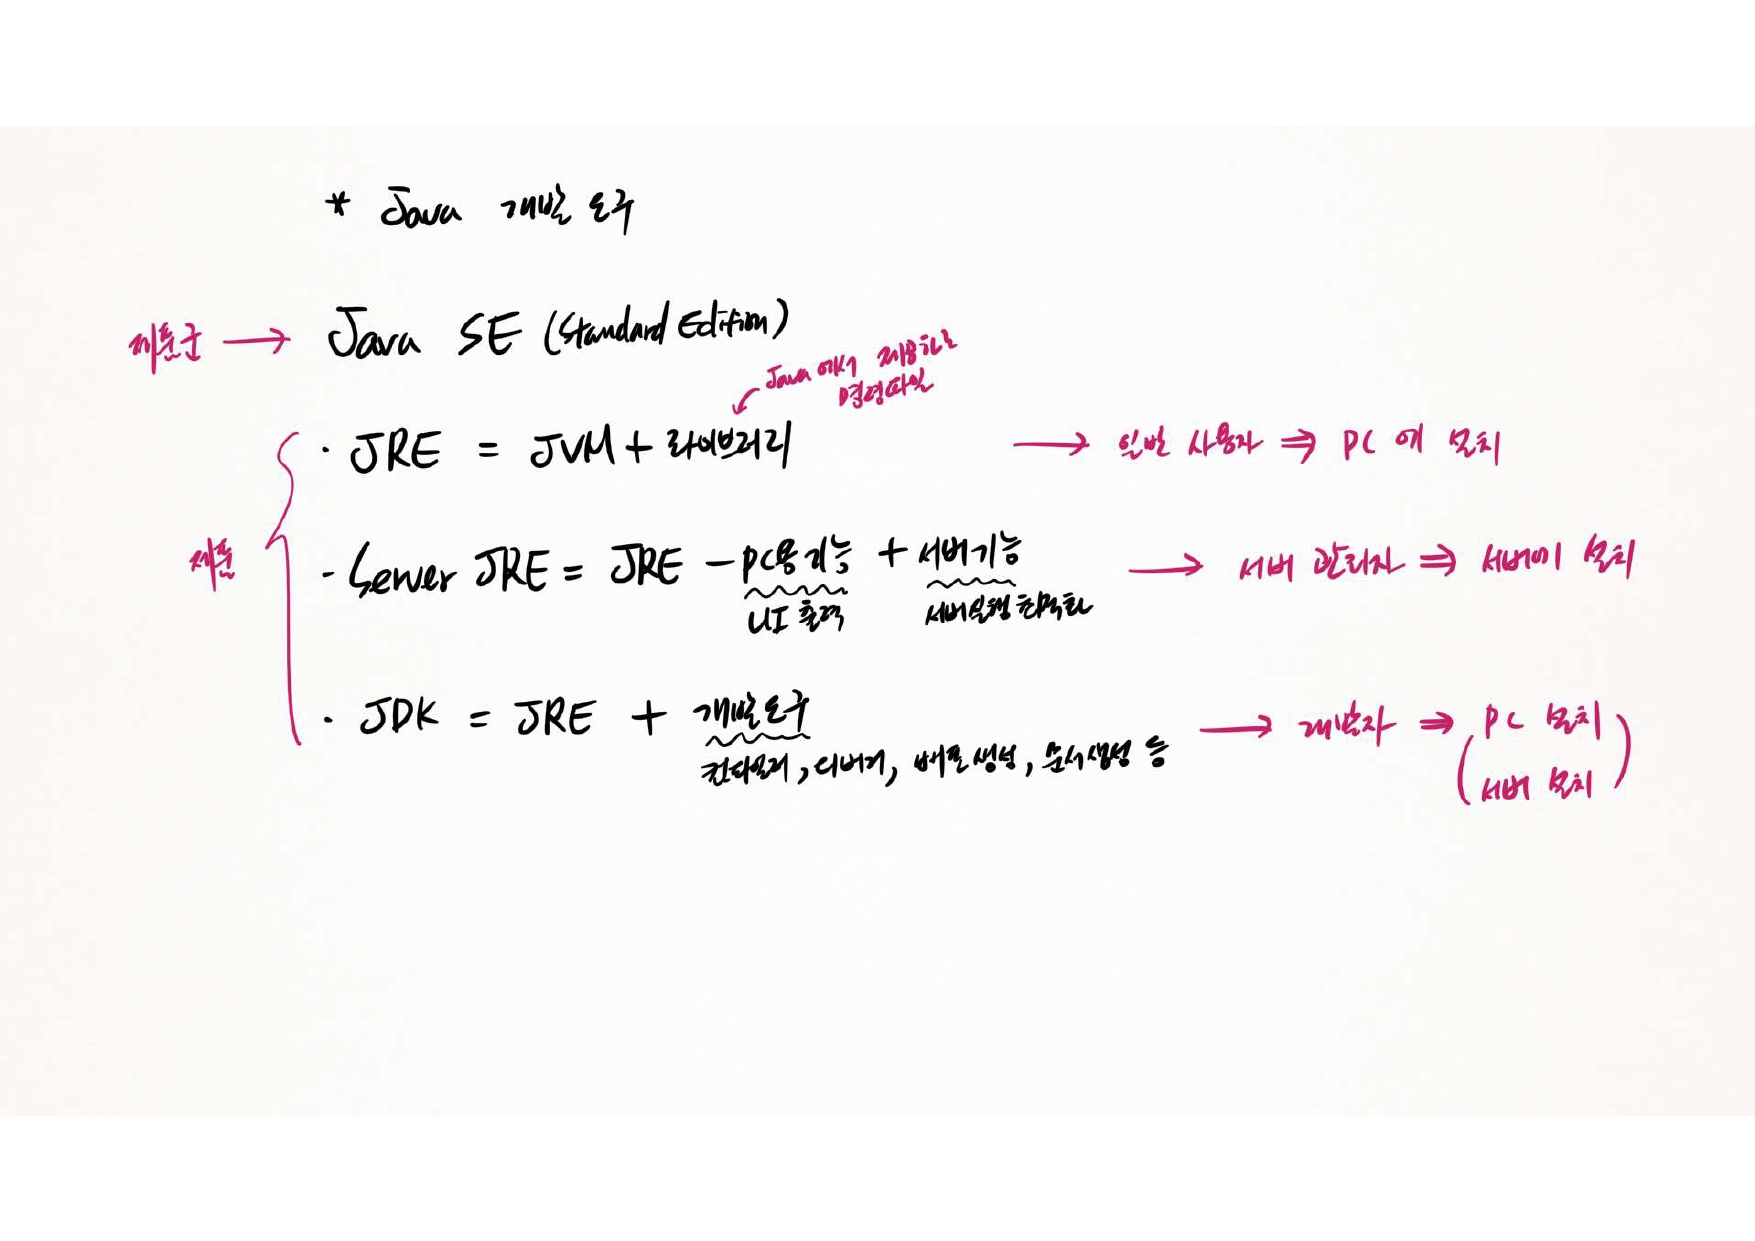 * Java 개발 도구
제품군 → Java SE (Standard Edition)
Java에서 제공하는
명령파일
제품
· JRE = JVM + 라이브러리 → 일반 사용자 ⇒ PC에 설치
- Server JRE = JRE - PC용기능 + 서버기능 → 서버 관리자 ⇒ 서버에 설치
UI 출력 서버실행 최적화
· JDK = JRE + 개발도구 → 개발자 ⇒ PC 설치
컴파일러, 디버거, 배포생성, 문서생성 등 (서버 설치)